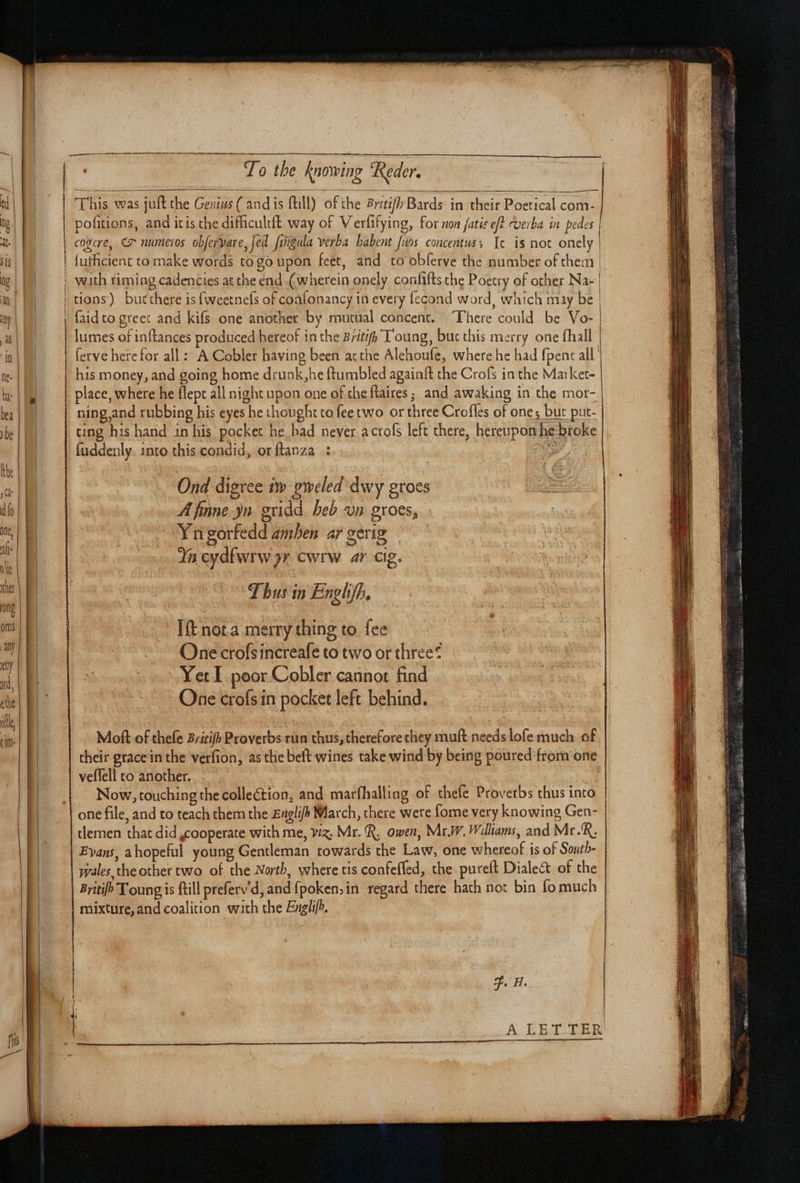 To the knowing Reder.
This was juſt the Genius ( and is ſtill) of the Britiſh Bards in their Poetical com-
poſitions, and it is the difficultſt way of Verſifying, for non ſatis eſt verba in pedes
cogere, & numeros obſervare, ſed ſingula verba habent ſuos concentus; It is not onely
ſufficient to make words to go upon feet, and to obſerve the number of them
with riming cadencies at the end (wherein onely conſiſts the Poetry of other Na-
tions) but there is ſweetneſs of conſonancy in every ſecond word, which may be
ſaid to greet and kiſs one another by mutual concent. There could be Vo-
lumes of inſtances produced hereof in the Britiſh Toung, but this merry one ſhall
ſerve here for all: A Cobler having been at the Alehouſe, where he had ſpent all
his money, and going home drunk, he ſtumbled againſt the Croſs in the Market-
place, where he ſlept all night upon one of the ſtaires; and awaking in the mor-
ning, and rubbing his eyes he thought to ſee two or three Croſſes of one; but put-
ting his hand in his pocket he had never a croſs left there, hereupon he broke
ſuddenly into this condid, or ſtanza :
Ond digree iw gweled dwy groes
A finne yn gridd heb un groes,
Yn gorfedd amhen ar gerig
Yn cydfwrw yr cwrw ar cig.
Thus in Engliſh,
Iſt not a merry thing to ſee
One croſs increaſe to two or three?
Yet I poor Cobler cannot find
One croſs in pocket left behind.
Moſt of theſe Britiſh Proverbs run thus, therefore they muſt needs loſe much of
their grace in the verſion, as the beſt wines take wind by being poured from one
veſſell to another.
Now, touching the collection, and marſhalling of theſe Proverbs thus into
one file, and to teach them the Engliſh March, there were ſome very knowing Gen-
tlemen that did cooperate with me, viz, Mr. R. Owen, Mr. W. Williams, and Mr. R.
Evans, a hopeful young Gentleman towards the Law, one whereof is of South-
wales, the other two of the North, where tis confeſſed, the pureſt Dialect of the
Britiſh Toung is ſtill preſerv'd, and ſpoken, in regard there hath not bin ſo much
mixture, and coalition with the Engliſh.
F. H.
A LETTER